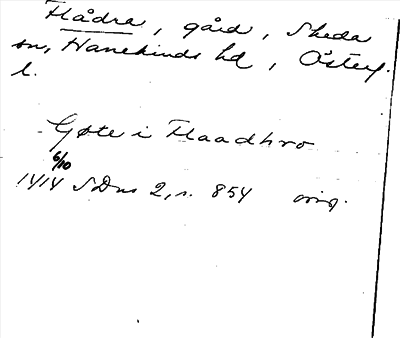 Flådra, gård, Skeda
sn, Hanekinds hd, Östergl.
l.
Gøte i Flaadhro
6/10
1414 SDns 2, s. 854 orig.